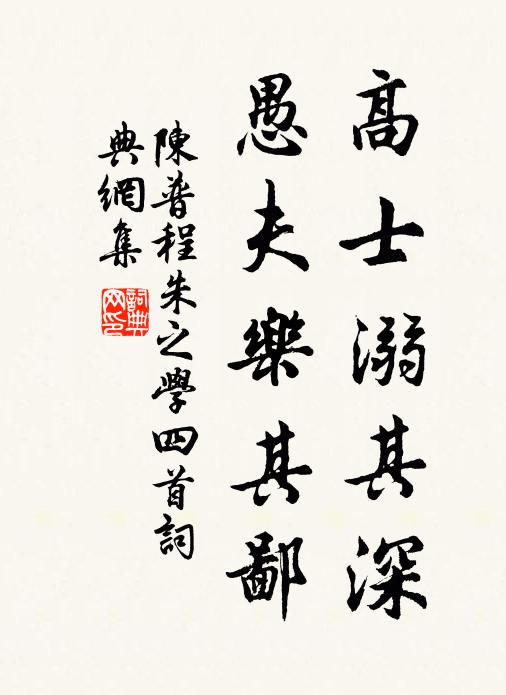 高士溺其深
愚夫樂其鄙
陳普程朱之學四首詞
典網集
詞典
网印